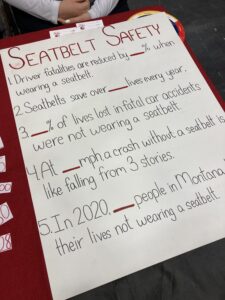 SEATBELT SAFETY
1. Driver fatalities are reduced by __% when
wearing a seatbelt.
2. Seatbelts save over __ lives every year.
3. __% of lives lost in fatal car accidents
were not wearing a seatbelt.
4. At __ mph a crash without a seatbelt is
like falling from 3 stories.
5. In 2020, __ people in Montana
their lives not wearing a seatbelt.